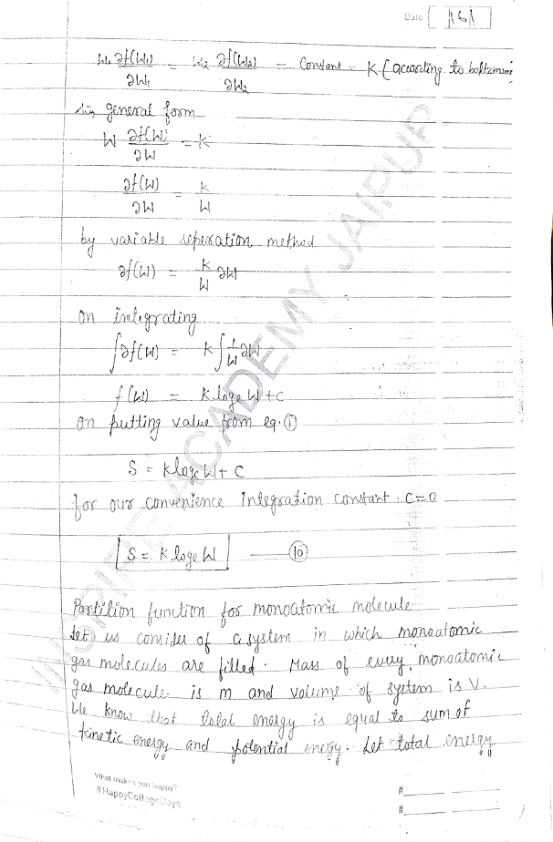 Date 161
W₁ ∂f(W₁)/∂W₁ = W₂ ∂f(W₂)/∂W₂ = Constant = K (according to boltzmann)
In general form
W ∂f(W)/∂W = K
∂f(W)/∂W = K/W
by variable seperation method
∂f(W) = K/W ∂W
on integrating
∫∂f(W) = K∫1/W ∂W
f(W) = K loge W + C
on putting value from eq. ①
S = K loge W + C
for our convenience integration constant C=0
S = K loge W —— ⑩
Partition function for monoatomic molecule
Let us consider of a system in which monoatomic
gas molecules are filled. Mass of every monoatomic
gas molecule is m and volume of system is V.
We know that total energy is equal to sum of
kinetic energy and potential energy. Let total energy
What makes you happy?
#HappyCollegeDays
#
#
INSPIRE ACADEMY JAIPUR